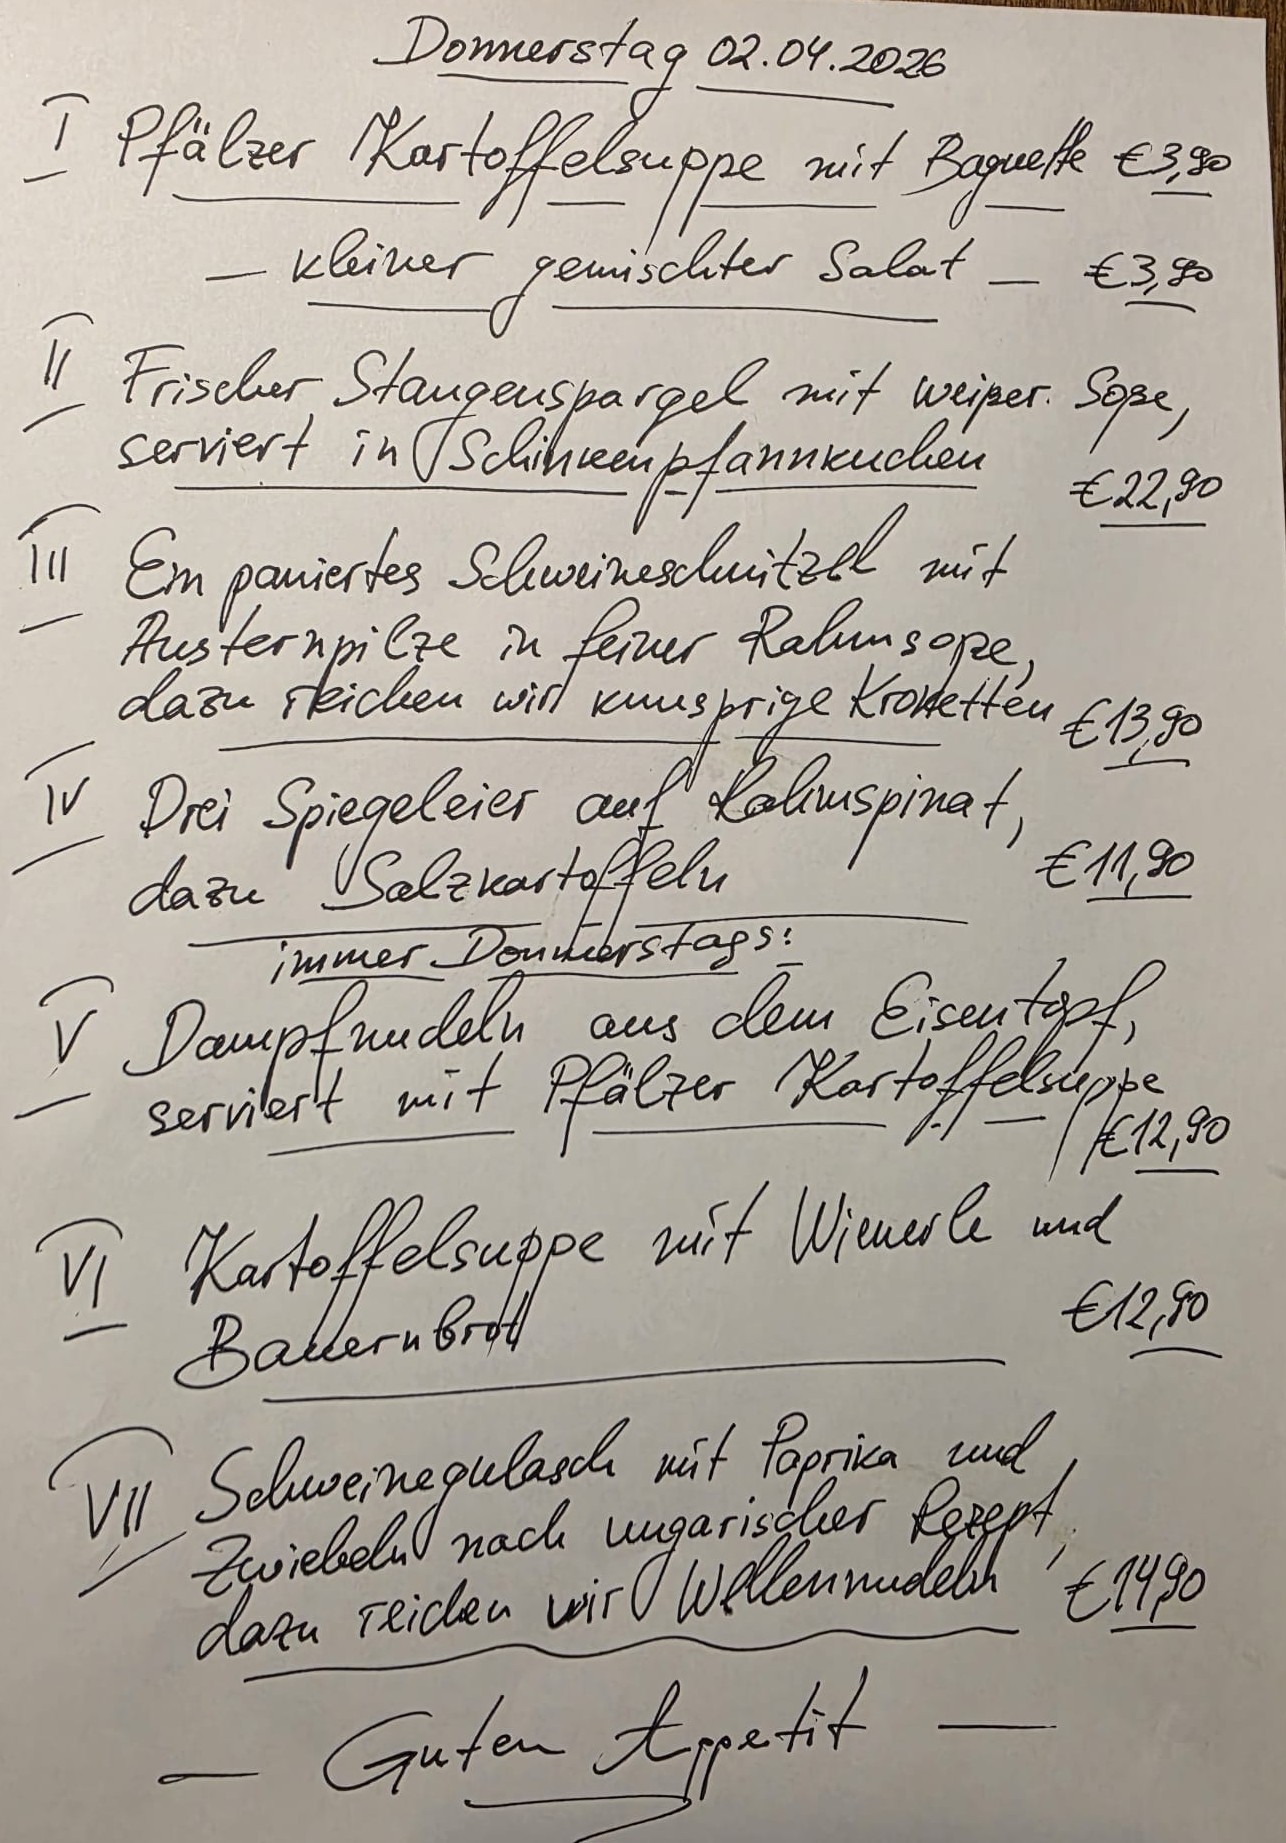 Donnerstag 02.04.2026
I Pfälzer Kartoffelsuppe mit Baguette €3,90
— kleiner gemischter Salat — €3,90
II Frischer Stangenspargel mit weißer Soße,
serviert in Schinkenpfannkuchen
€22,90
III Ein paniertes Schweineschnitzel mit
Austernpilze in feiner Rahmsoße,
dazu reichen wir knusprige Kroketten €13,90
IV Drei Spiegeleier auf Rahmspinat,
dazu Salzkartoffeln €11,90
immer Donnerstags:
V Dampfnudeln aus dem Eisentopf,
serviert mit Pfälzer Kartoffelsuppe
€12,90
VI Kartoffelsuppe mit Wienerle und
Bauernbrot €12,90
VII Schweinegulasch mit Paprika und
Zwiebeln nach ungarischer Rezept,
dazu reichen wir Wellennudeln €14,90
— Guten Appetit —